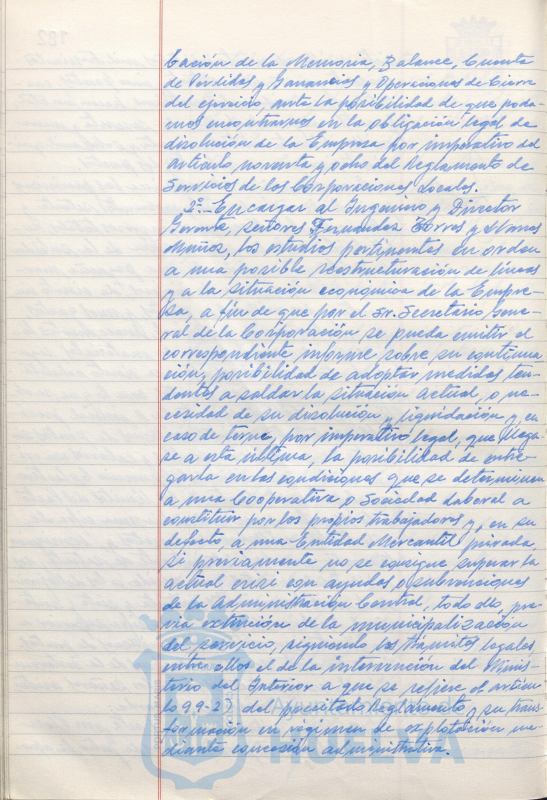 cación de la Memoria, Balance, Cuenta
de Pérdidas y Ganancias y Operaciones de Cierre
del ejercicio, ante la posibilidad de que poda-
mos encontrarnos en la obligación legal de
disolución de la Empresa por imperativo del
artículo noventa y ocho del Reglamento de
Servicios de las Corporaciones Locales.
2º.- Encargar al Ingeniero y Director
Gerente, señores Fernández Torres y Llanes
Muñoz, los estudios pertinentes en orden
a una posible reestructuración de líneas
y a la situación económica de la Empre-
sa, a fin de que por el Sr. Secretario Gene-
ral de la Corporación se pueda emitir el
correspondiente informe sobre su continua
ción, posibilidad de adoptar medidas ten-
dentes a soldar la situación actual, o ne-
cesidad de su disolución y liquidación y, en
caso de , por imperativo legal, que llega-
se a esta última, la posibilidad de entre-
garla en las condiciones que se determinen
a una Cooperativa o Sociedad Laboral a
constituir por los propios trabajadores y, en su
defecto, a una Entidad Mercantil privada,
si previamente no se consigue superar la
actual crisi con ayudas o subvenciones
de la Administración Central, todo ello, pre-
via extinción de la municipalización
del servicio, siguiendo los trámites legales,
entre ellos el de la intervención del Minis-
terio del Interior a que se refiere el artícu-
lo 99-2) del precitado Reglamento y su trans-
formación en régimen de explotación me-
diante concesión administrativa.
HUELVA
182